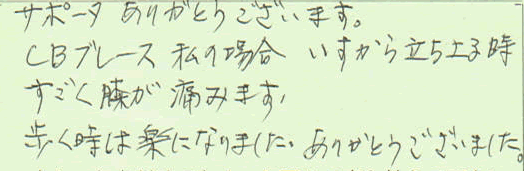 サポータ ありがとうございます。
CBブレース 私の場合 いすから立ち上る時
すごく膝が痛みます,
歩く時は楽になりました、ありがとうございました。